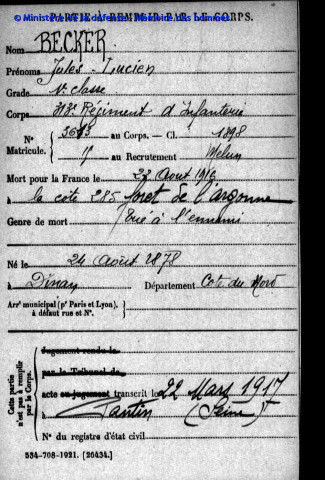 © Ministère de la défense - Mémoire des hommes
PARTIE À REMPLIR PAR LE CORPS.
Nom BECKER
Prénoms Jules - Lucien
Grade
Corps 313e Régiment d'Infanterie
N° 3613 au Corps. — Cl. 1898
Matricule. au Recrutement Melun
Mort pour la France le 27 Août 1916
à la côte 285 foret de l'argonne
Genre de mort Tué à l'ennemi
Né le 24 Août 1878
à Dinan Département Cote du Nord
Arrt municipal (pr Paris et Lyon),
à défaut rue et N°.
Cette partie n'est pas à remplir par le Corps.
Jugement rendu le
par le Tribunal de
acte ou jugement transcrit le 22 Mars 1917
à Pantin (Seine)
N° du registre d'état civil
534-708-1921. [26434.]